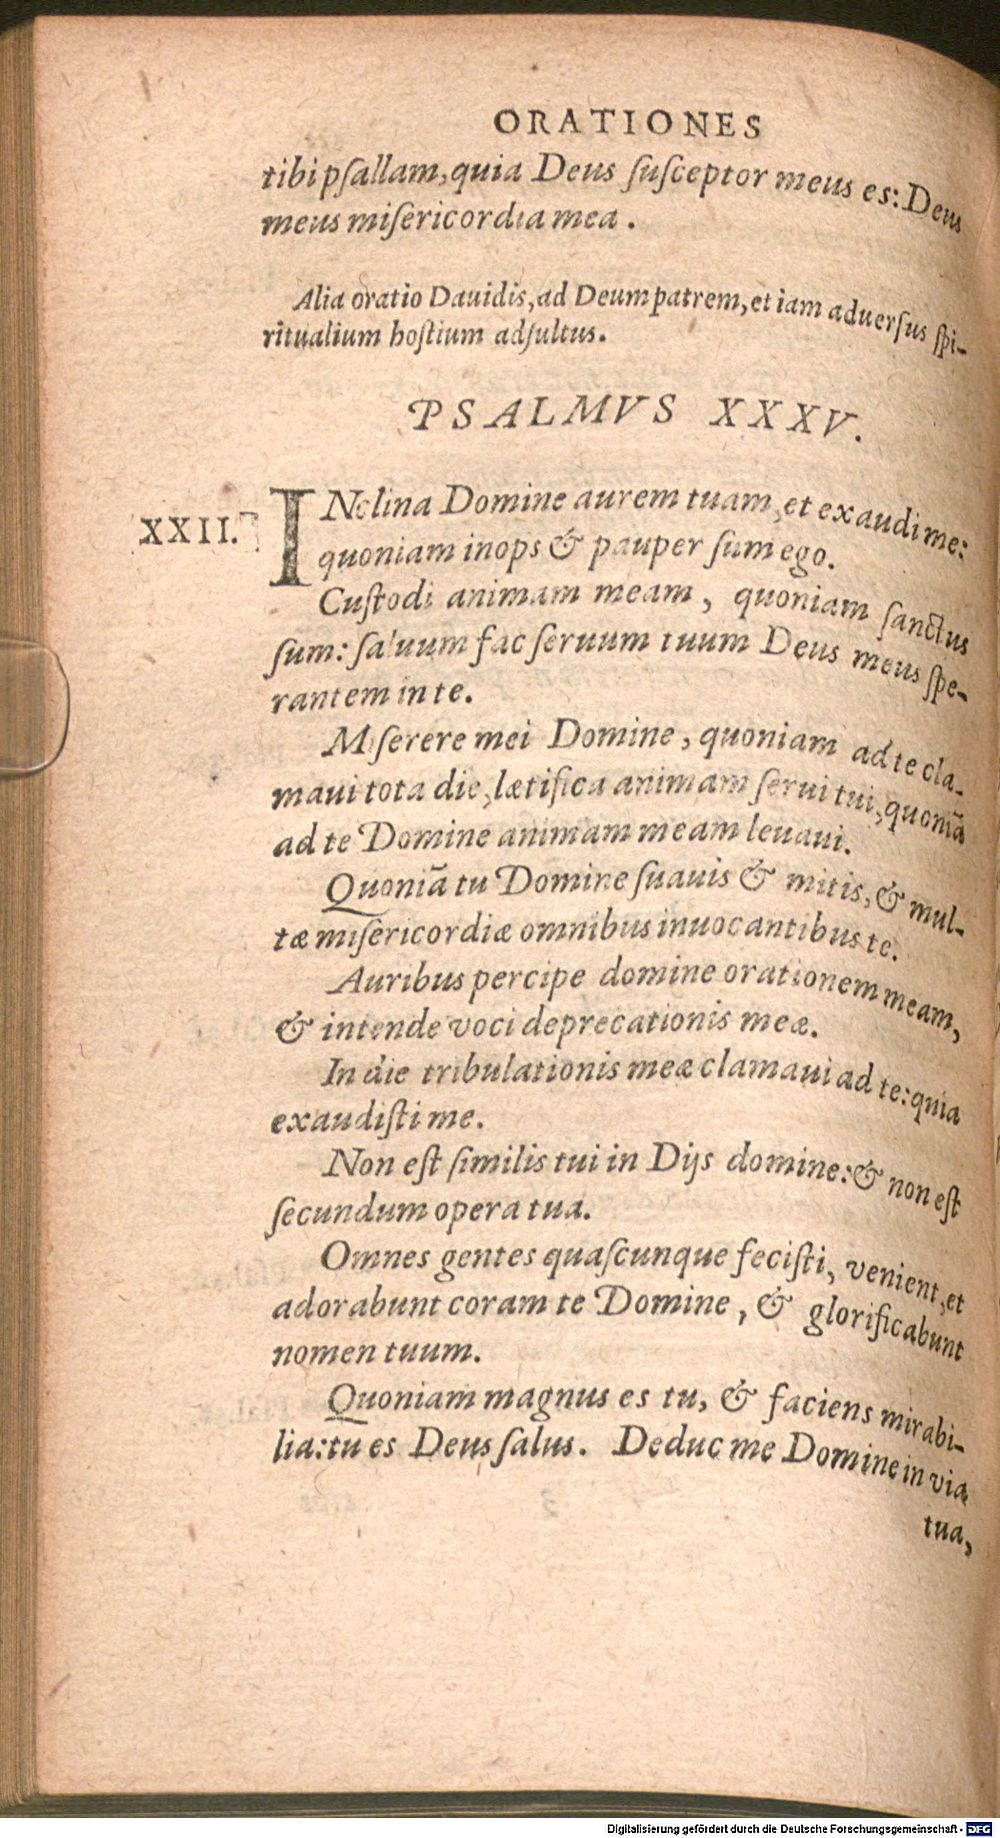 ORATIONES
tibi psallam, quia Deus susceptor meus es: Deus
meus misericordia mea.
Alia oratio Dauidis, ad Deum patrem, et iam aduersus spi-
ritualium hostium adsultus.
PSALMVS XXXV.
XXII. INclina Domine aurem tuam, et exaudi me:
quoniam inops & pauper sum ego.
Custodi animam meam, quoniam sanctus
sum: saluum fac seruum tuum Deus meus spe-
rantem in te.
Miserere mei Domine, quoniam ad te cla-
maui tota die, lætifica animam serui tui, quoniã
ad te Domine animam meam leuaui.
Quoniã tu Domine suauis & mitis, & mul-
tæ misericordiæ omnibus inuocantibus te.
Auribus percipe domine orationem meam,
& intende voci deprecationis meæ.
In die tribulationis meæ clamaui ad te: quia
exaudisti me.
Non est similis tui in Dijs domine: & non est
secundum opera tua.
Omnes gentes quascunque fecisti, venient, et
adorabunt coram te Domine, & glorificabunt
nomen tuum.
Quoniam magnus es tu, & faciens mirabi-
lia: tu es Deus salus. Deduc me Domine in via
tua,
Digitalisierung gefördert durch die Deutsche Forschungsgemeinschaft - DFG